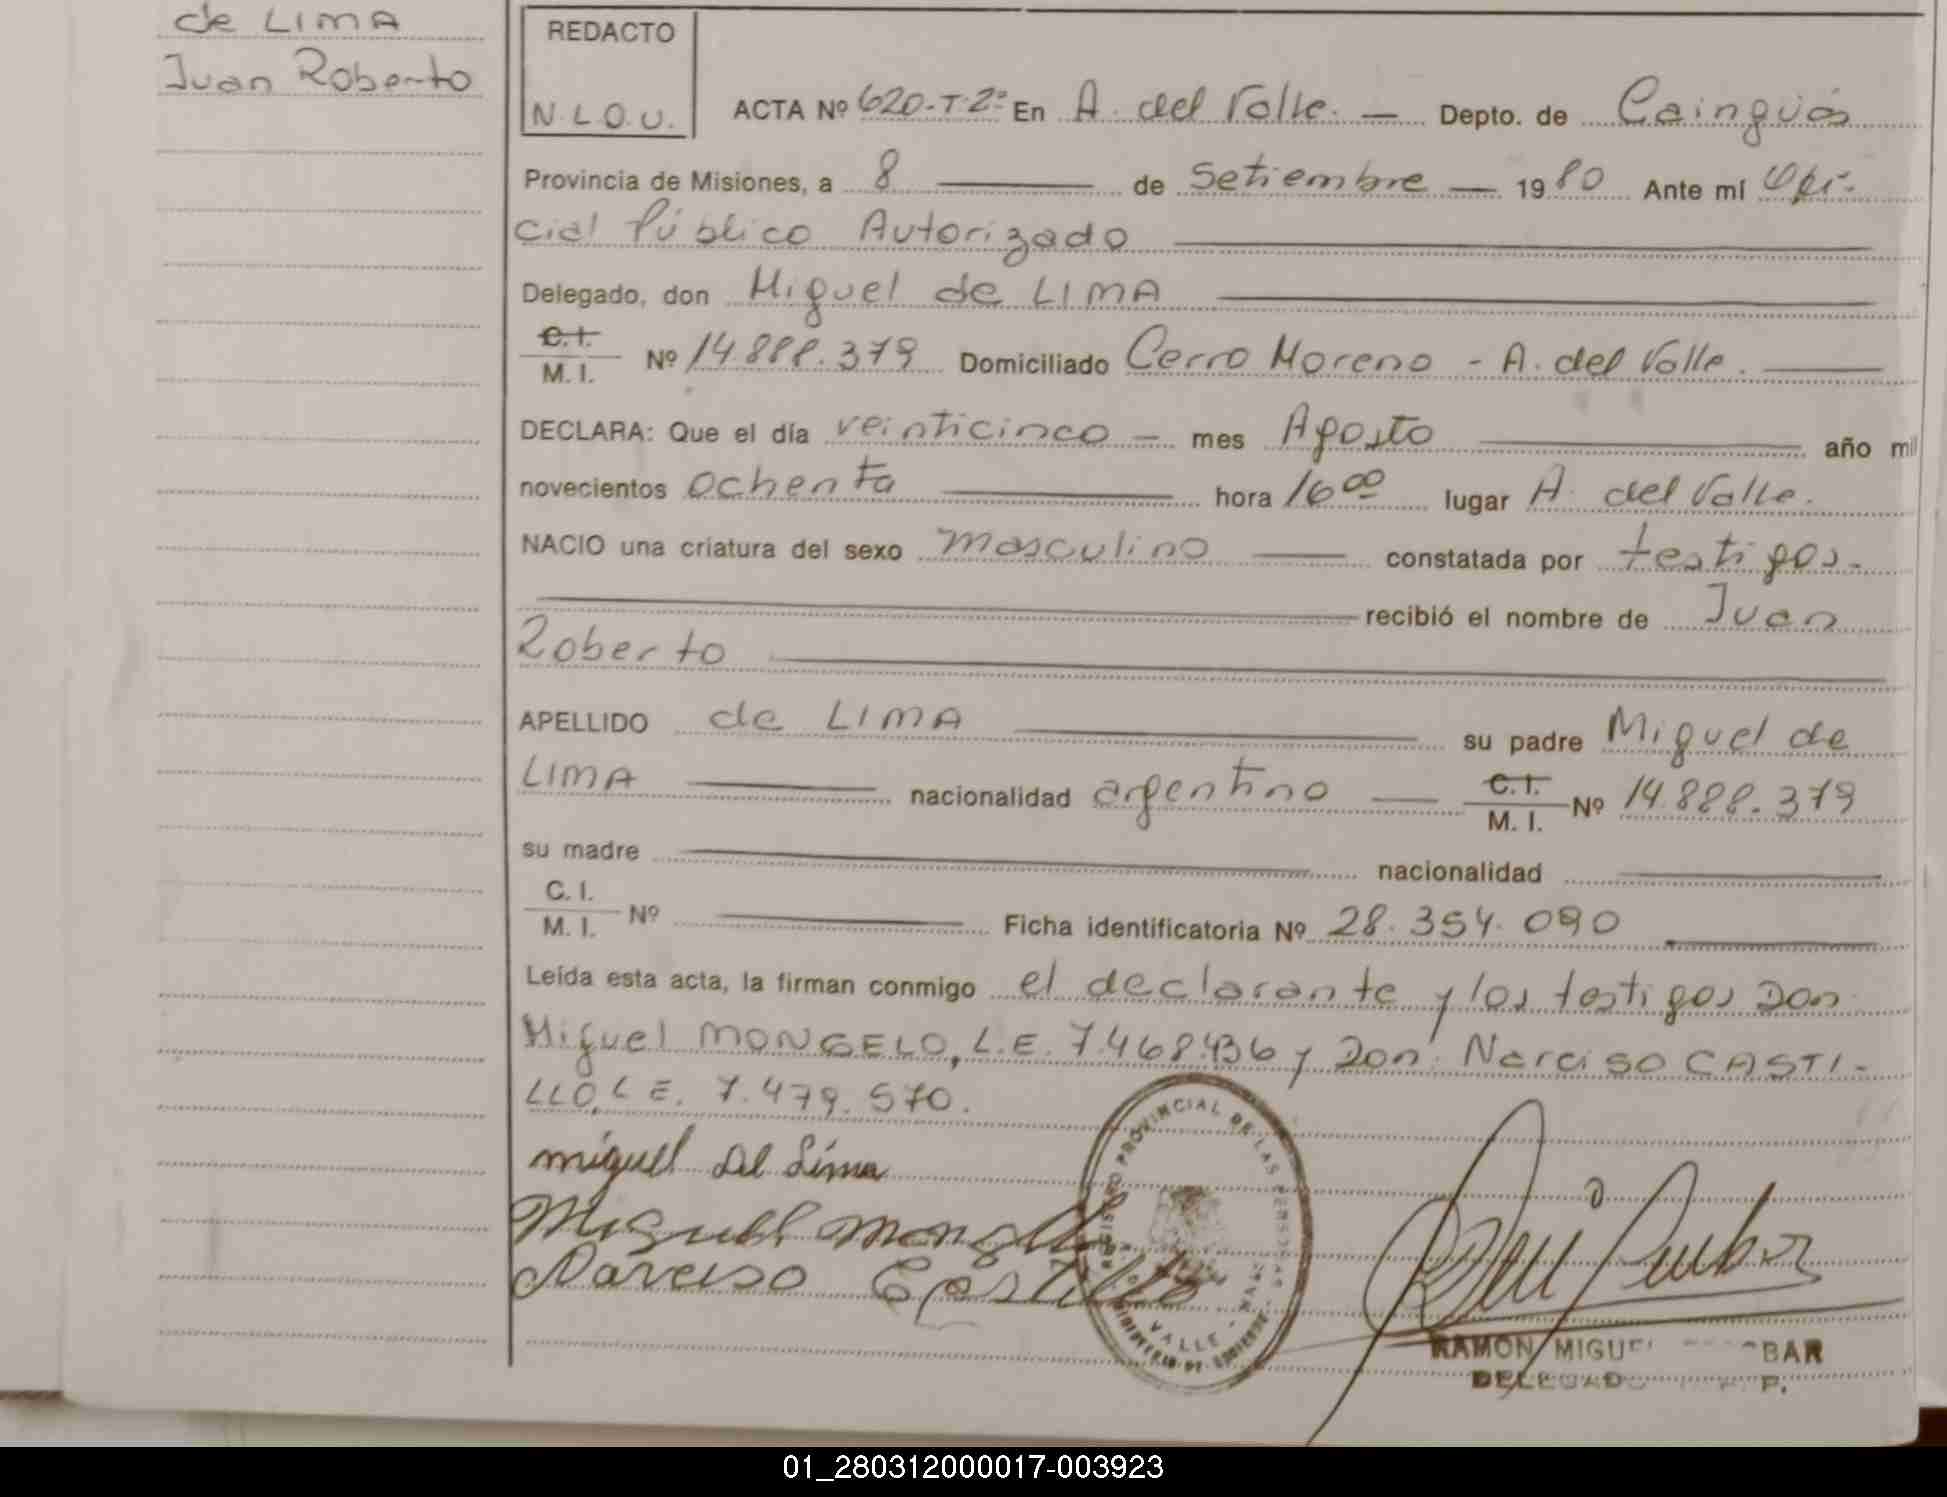 de LIMA
Juan Roberto
REDACTO
N.L.O.U.
ACTA Nº 620-T.2º En A. del Valle. — Depto. de Cainguás
Provincia de Misiones, a 8 — de Setiembre — 1980 Ante mí Ofi-
cial Público Autorizado
Delegado, don Miguel de LIMA
C.I.
M. I. Nº 14.888.379 Domiciliado Cerro Moreno - A. del Valle.
DECLARA: Que el día veinticinco — mes Agosto año mil
novecientos ochenta hora 16 00 lugar A. del Valle.
NACIO una criatura del sexo masculino constatada por testigos.
recibió el nombre de Juan
Roberto
APELLIDO de LIMA su padre Miguel de
LIMA nacionalidad argentino C.I. M. I. Nº 14.888.379
su madre nacionalidad
C. I.
M. I. Nº Ficha identificatoria Nº 28.354.090
Leída esta acta, la firman conmigo el declarante y los testigos Don
Miguel MONGELO, L.E. 7.468.436 y Don: Narciso CASTI-
LLO, L E. 7.479.570.
miguel de Lima
Miguel Mongelo
Narciso Castillo
REGISTRO PROVINCIAL DE LAS PERSONAS
VALLE
RAMON MIGUEL BAR
DELEGADO P.
01_280312000017-003923